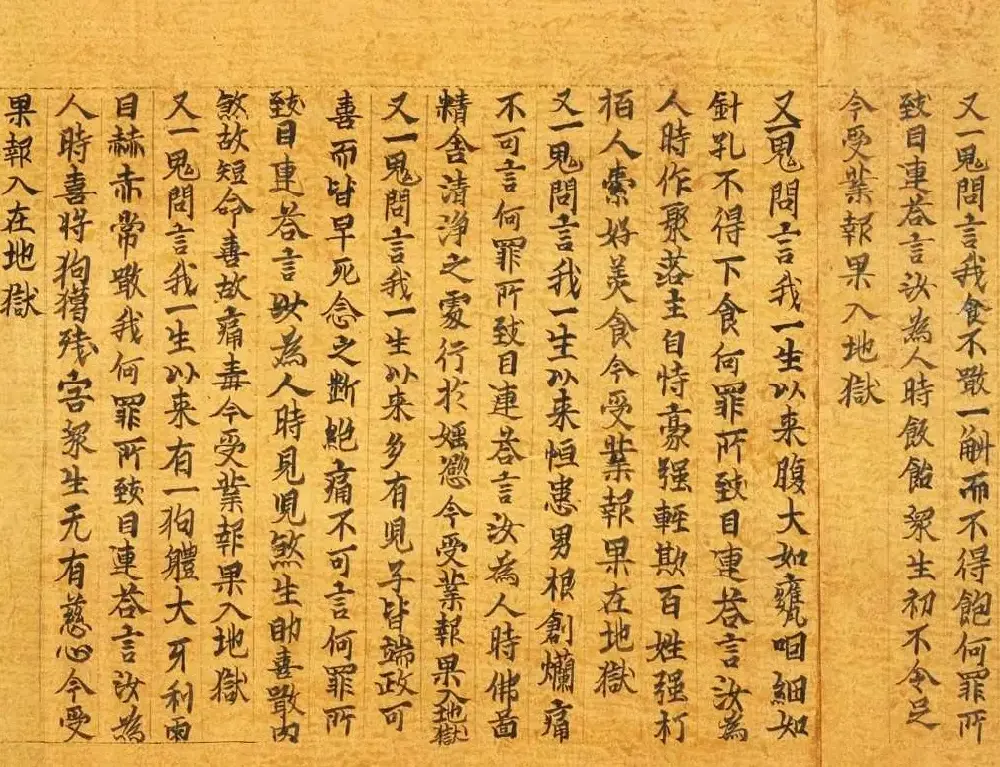 又一鬼問言我食不噉一斛而不得飽何罪所
致目連荅言汝為人時飲飴衆生初不令足
今受業報果入地獄
又一鬼問言我一生以来腹大如甕咽細如
針孔不得下食何罪所致目連荅言汝為
人時作聚落主自恃豪强輕欺百姓强打
栢人索好美食今受業報果在地獄
又一鬼問言我一生以来恒患男根創爛痛
不可言何罪所致目連荅言汝為人時佛啚
精舍清浄之處行於婬慾今受業報果入地獄
又一鬼問言我一生以来多有兒子皆端政可
喜而皆早死念之断絶痛不可言何罪所
致目連荅言以為人時見兒煞生助喜噉肉
煞故短命喜故痛毒今受業報果入地獄
又一鬼問言我一生以来有一狗體大牙利兩
目赫赤常噉我何罪所致目連荅言汝為
人時喜将狗獵残害衆生无有慈心今受
果報入在地獄